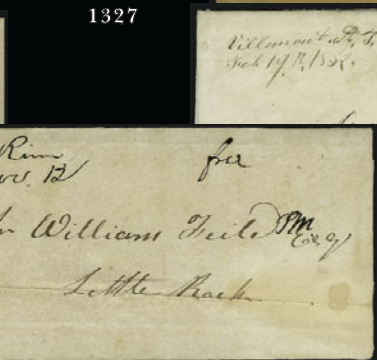 1327
Villemont A. T.
Feb 19th 1832.
free
William Feild PM
Little Rock